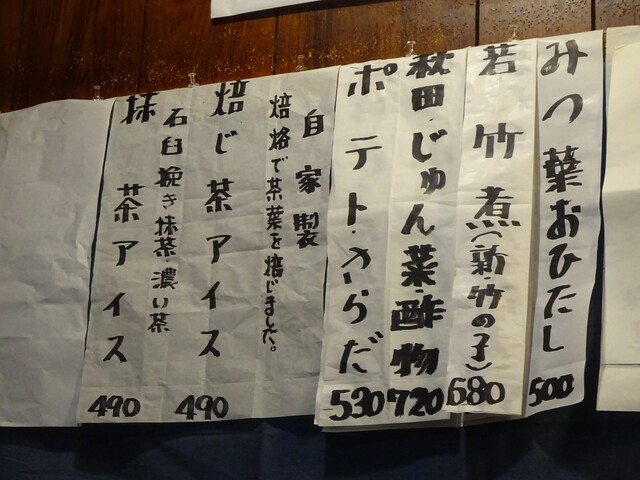 みつ葉おひたし
500
若竹煮(新・竹の子)
680
秋田・じゅん菜・酢物
720
ポテト・さらだ
530
自家製
焙烙で茶葉を焙じました。
焙じ茶アイス
490
石臼挽き抹茶濃い茶
抹茶アイス
490